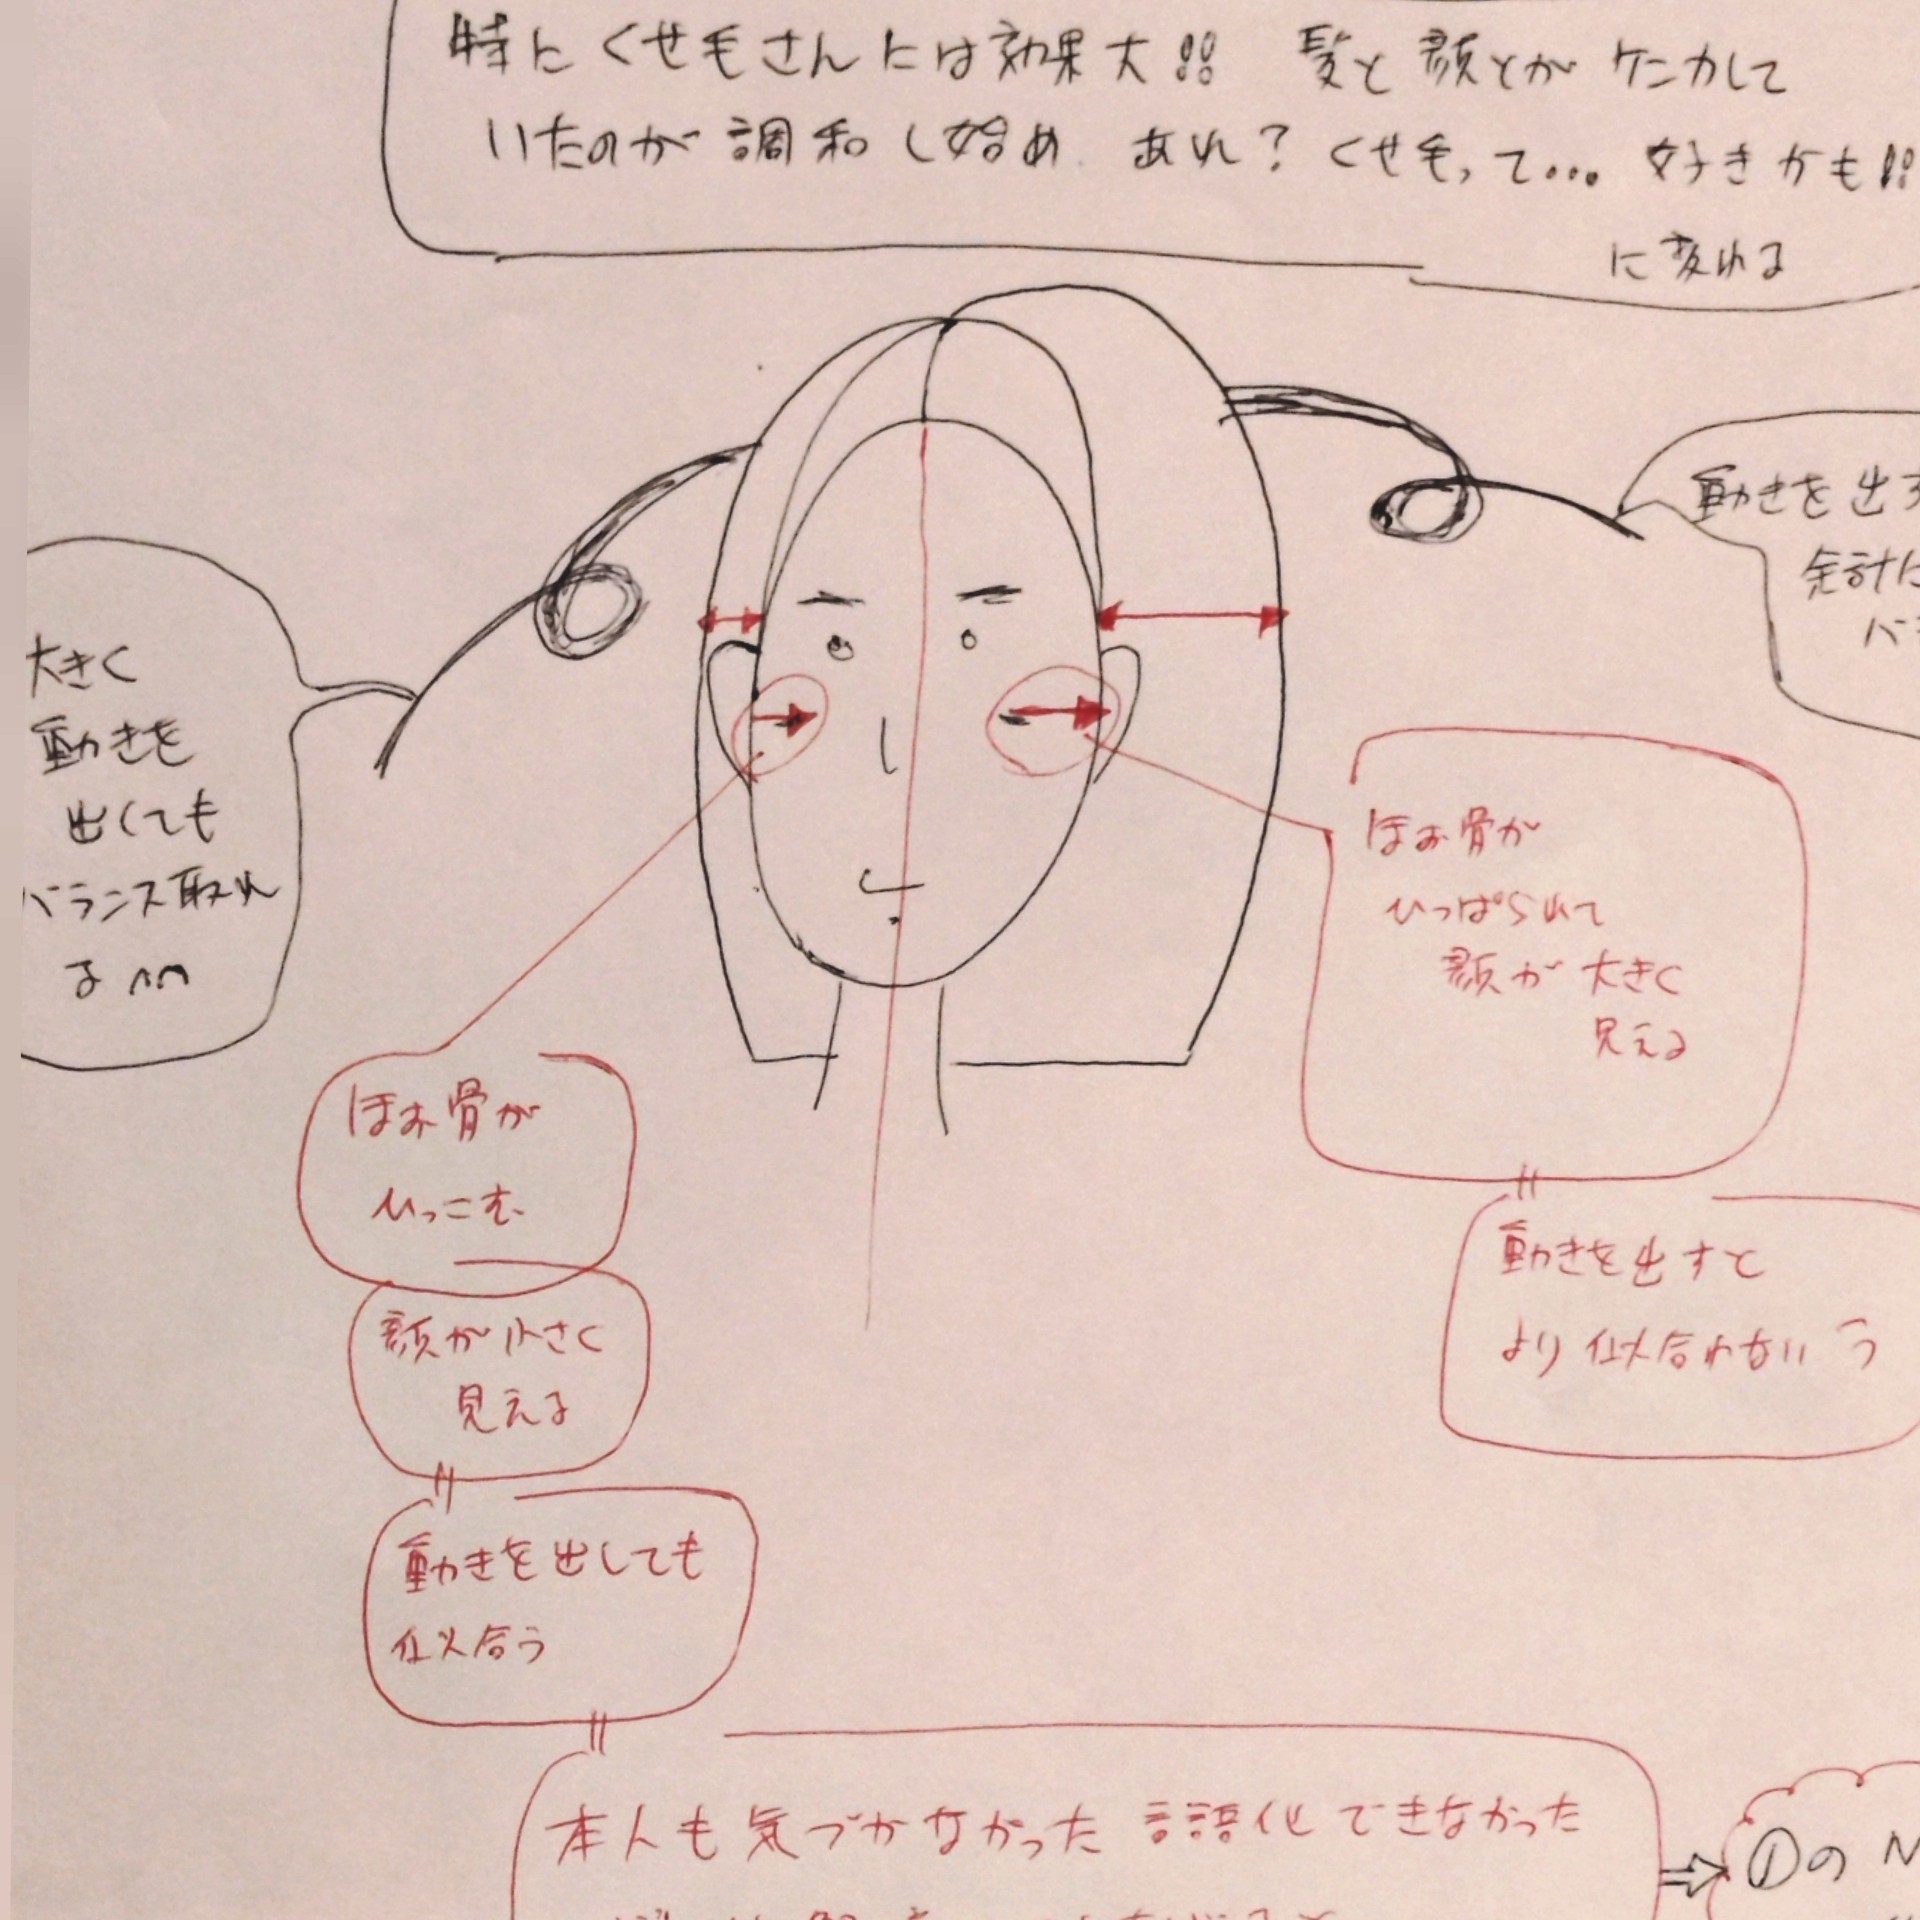 特にくせ毛さんには効果大!! 髪と顔とがケンカして
いたのが調和し始め あれ? くせ毛って… 好きかも!!
に変われる
動きを出す
余計に
バラ
大きく
動きを
出くても
バランス取れ
る
ほお骨が
ひっぱられて
顔が大きく
見える
ほお骨が
ひっこむ
動きを出すと
より似合わない
顔が小さく
見える
動きを出しても
似合う
本人も気づかなかった 言語化できなかった
①の